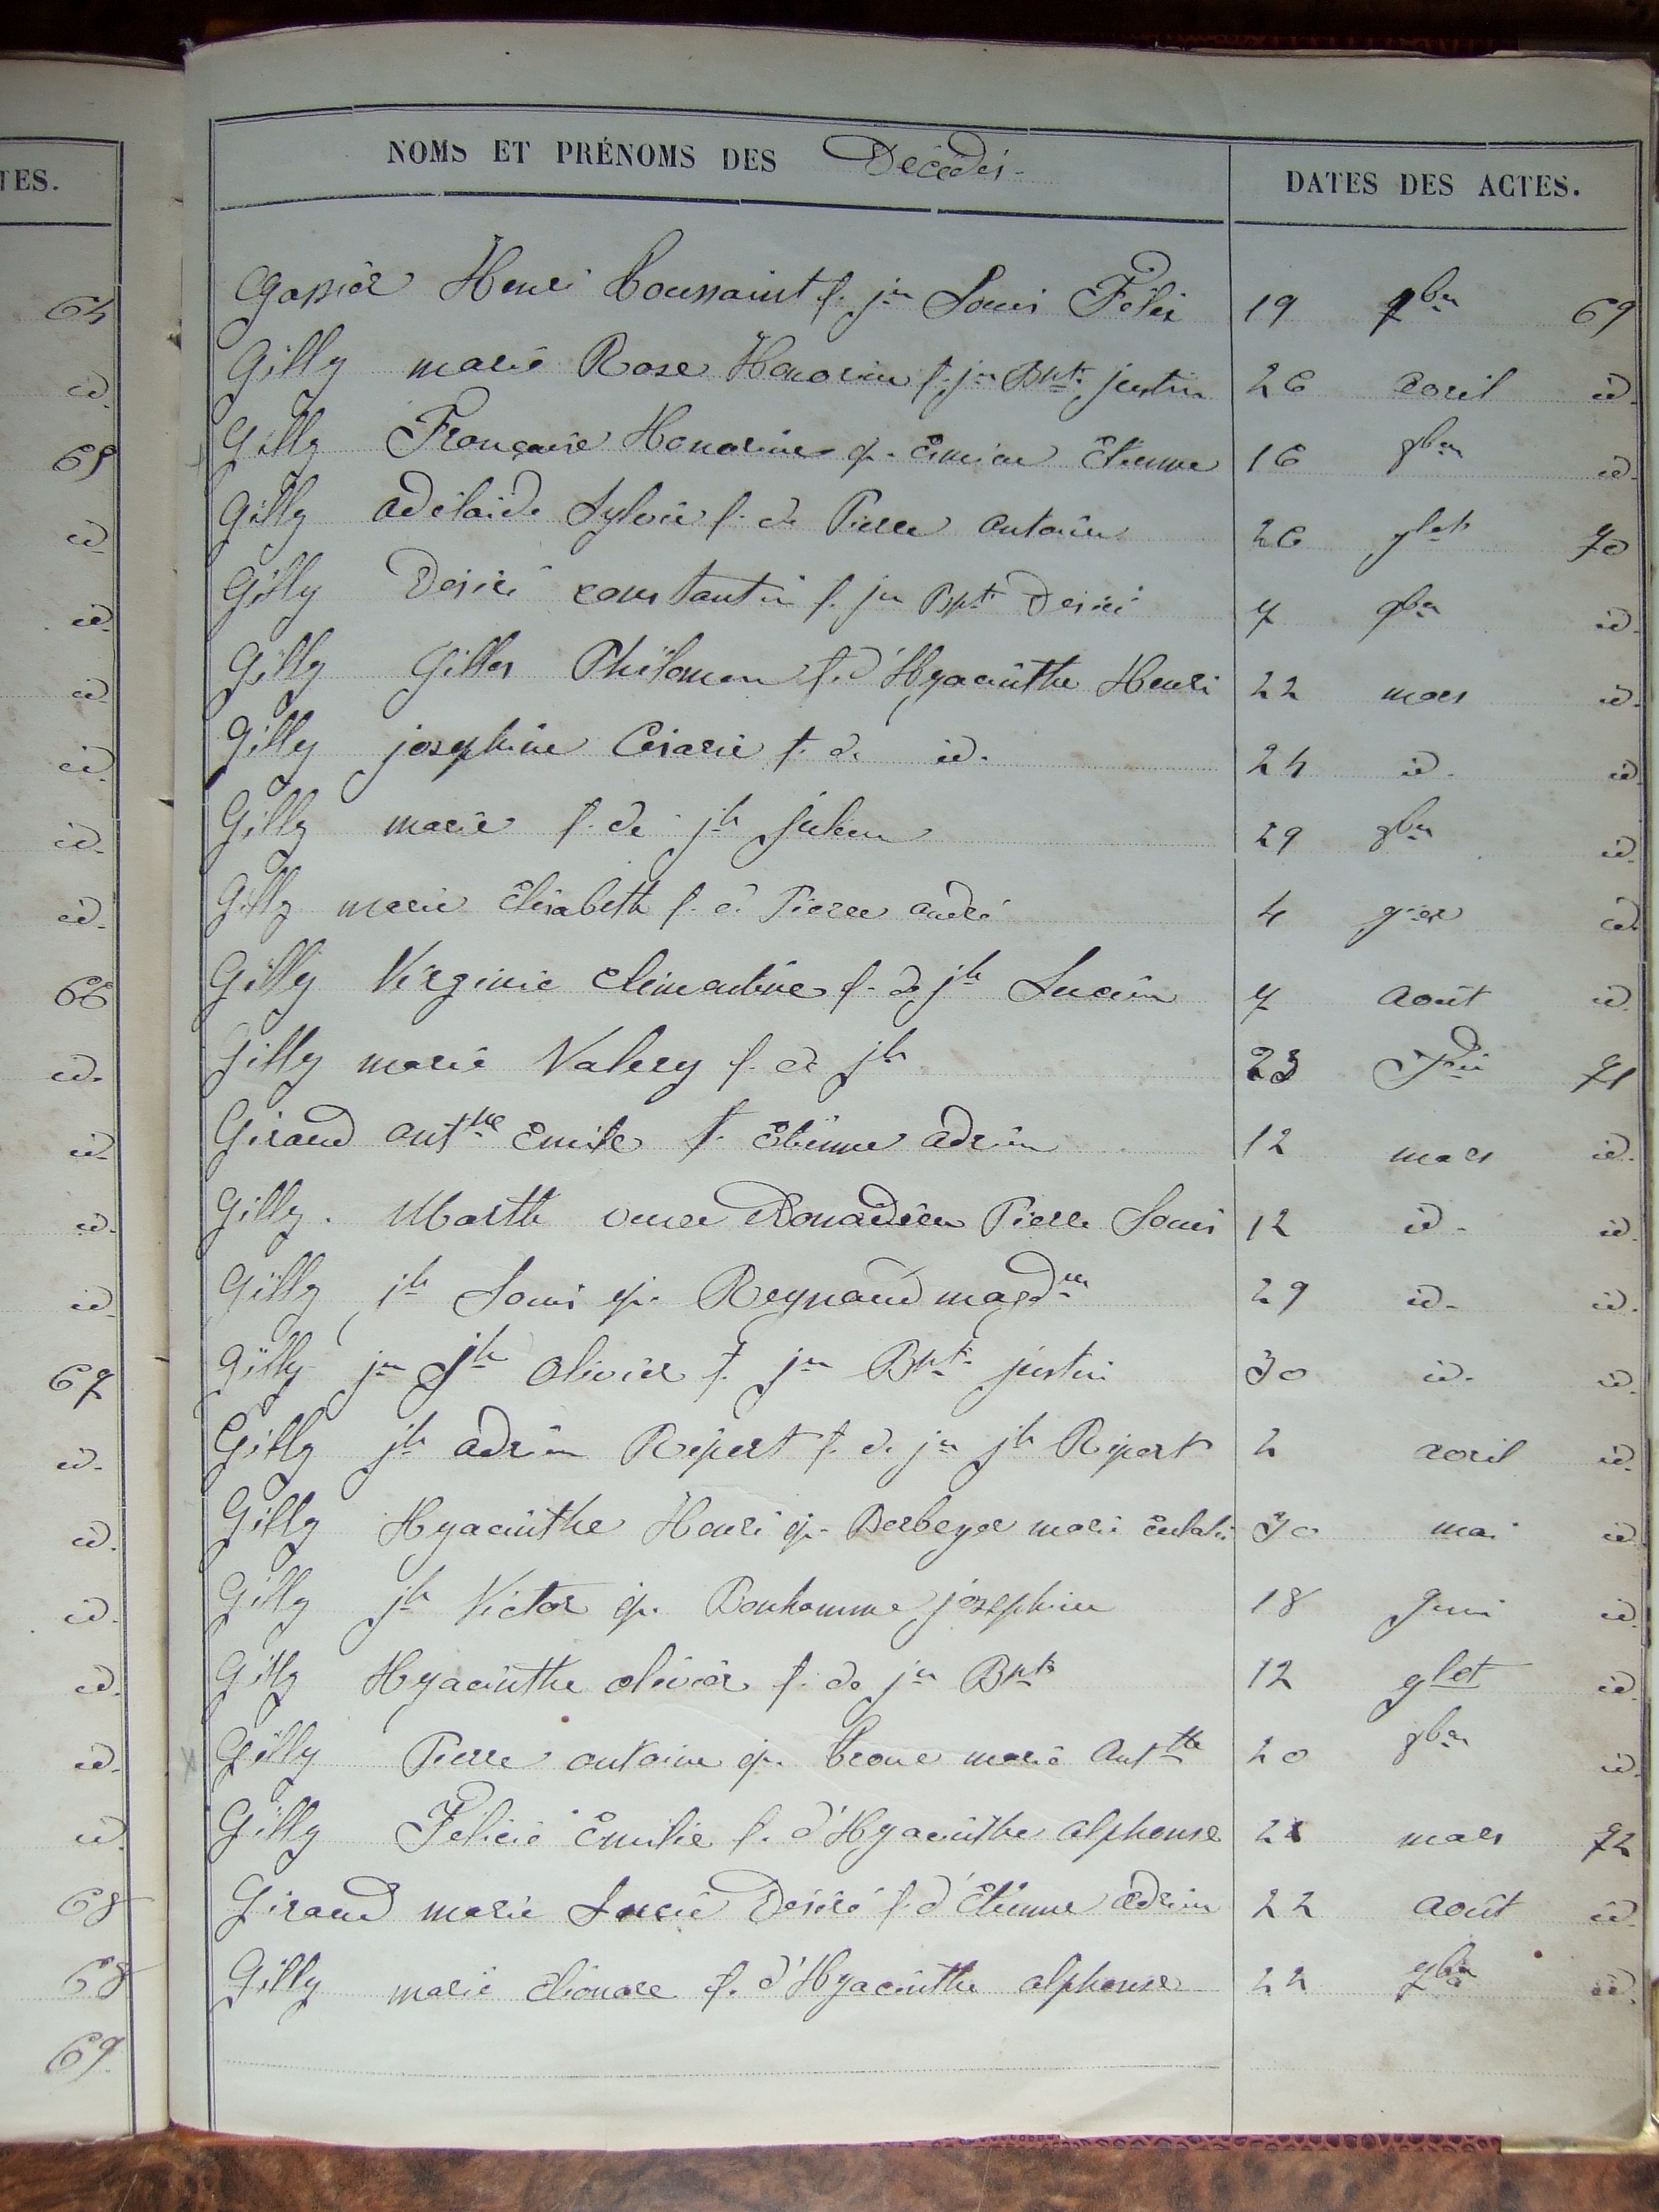 TES.
64
id.
65
id.
id.
id.
id.
id.
id.
66
id.
id.
id.
id.
67
id.
id.
id.
id.
id.
id.
68
68
69
NOMS ET PRÉNOMS DES Décédés DATES DES ACTES.
Gassier Henri Toussaint f. jn Louis Félix 19 9bre 69
Gilly marie Rose Honorine f. jn Bpte justin 26 avril id.
Gilly Françoise Honorine ép. Étienne 16 8bre id.
Gilly adélaïde Sylvie f. de Pierre antoine 26 jlet 70
Gilly Désiré constantin f. jn Bpte Désiré 7 9bre id.
Gilly Gilles Philomen f. d'Hyacinthe Henri 22 mars id.
Gilly joséphine Césarie f. de id. 24 id. id.
Gilly marie f. de jh Julien 29 8bre id.
Gilly marie Elisabeth f. de Pierre andré 4 jier id.
Gilly Virginie clémentine f. de jh Lucien 7 août id.
Gilly marie Valery f. de jh 23 71
Giraud antne Emile f. Etienne adrien 12 mars id.
Gilly. Marthe veuve Donadieu Pierre Louis 12 id. id.
Gilly jh Louis ép. Reynaud magdne 29 id. id.
Gilly jn jh olivier f. jn Bpte justin 30 id. id.
Gilly jh adrien Ripert f. de jn jh Ripert 2 avril id.
Gilly Hyacinthe Henri ép. Berbeyer marie Eulalie 30 mai id.
Gilly jh Victor ép. Bonhomme joséphine 18 juin id.
Gilly Hyacinthe olivier f. de jn Bpte 12 jlet id.
Gilly Pierre antoine ép. marie Antte 20 8bre id.
Gilly Félicie Emilie f. d'Hyacinthe alphonse mars 72
Giraud marie Lucie Désiré f. d'Etienne adrien 22 août id.
Gilly marie éléonore f. d'Hyacinthe alphonse 22 id.